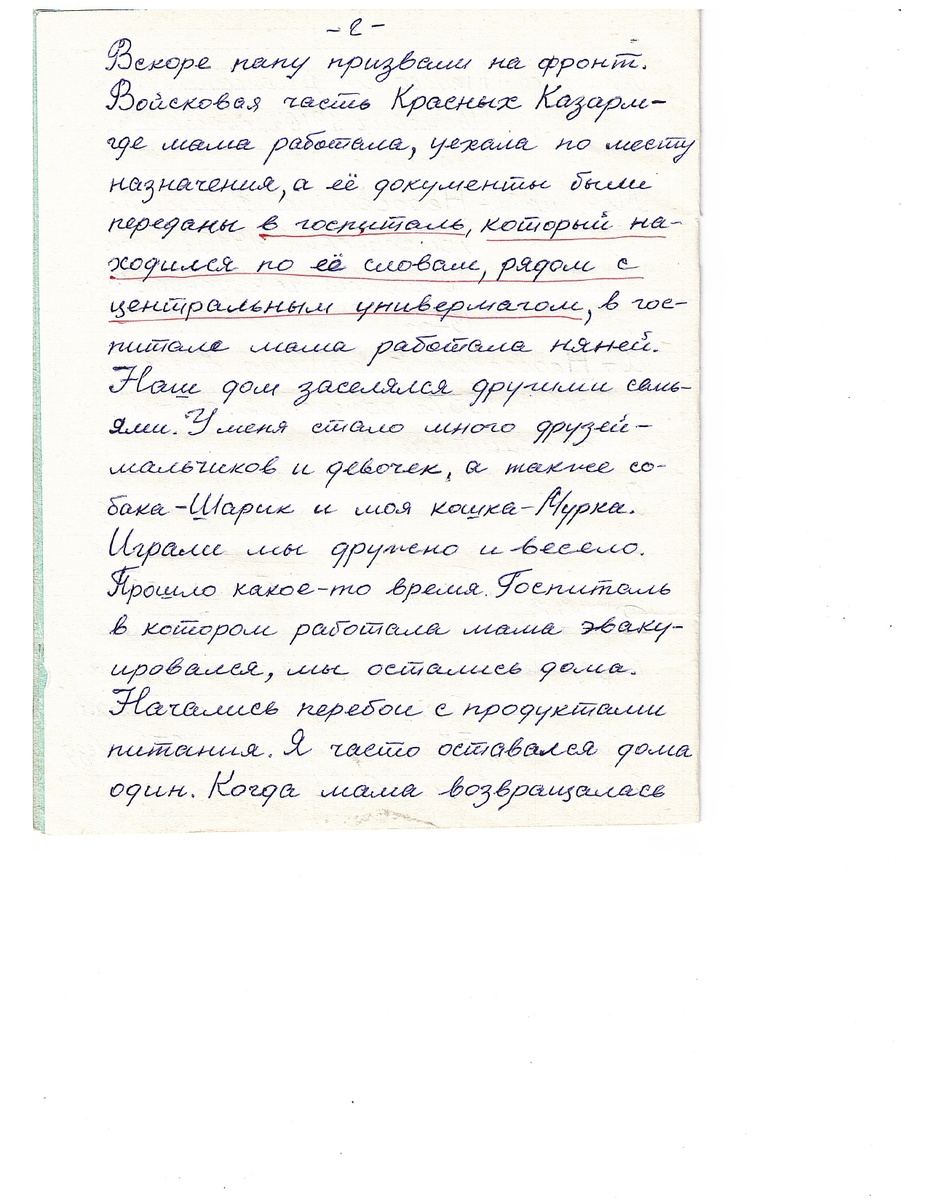 -2-
Вскоре папу призвали на фронт.
Войсковая часть Красных Казарм-
где мама работала, уехала по месту
назначения, а её документы были
переданы в госпиталь, который на-
ходился по её словам, рядом с
центральным универмагом, в гос-
питале мама работала няней.
Наш дом заселялся другими семь-
ями. У меня стало много друзей-
мальчиков и девочек, а также со-
бака-Шарик и моя кошка-Мурка.
Играли мы дружно и весело.
Прошло какое-то время. Госпиталь
в котором работала мама эваку-
ировался, мы остались дома.
Начались перебои с продуктами
питания. Я часто оставался дома
один. Когда мама возвращалась